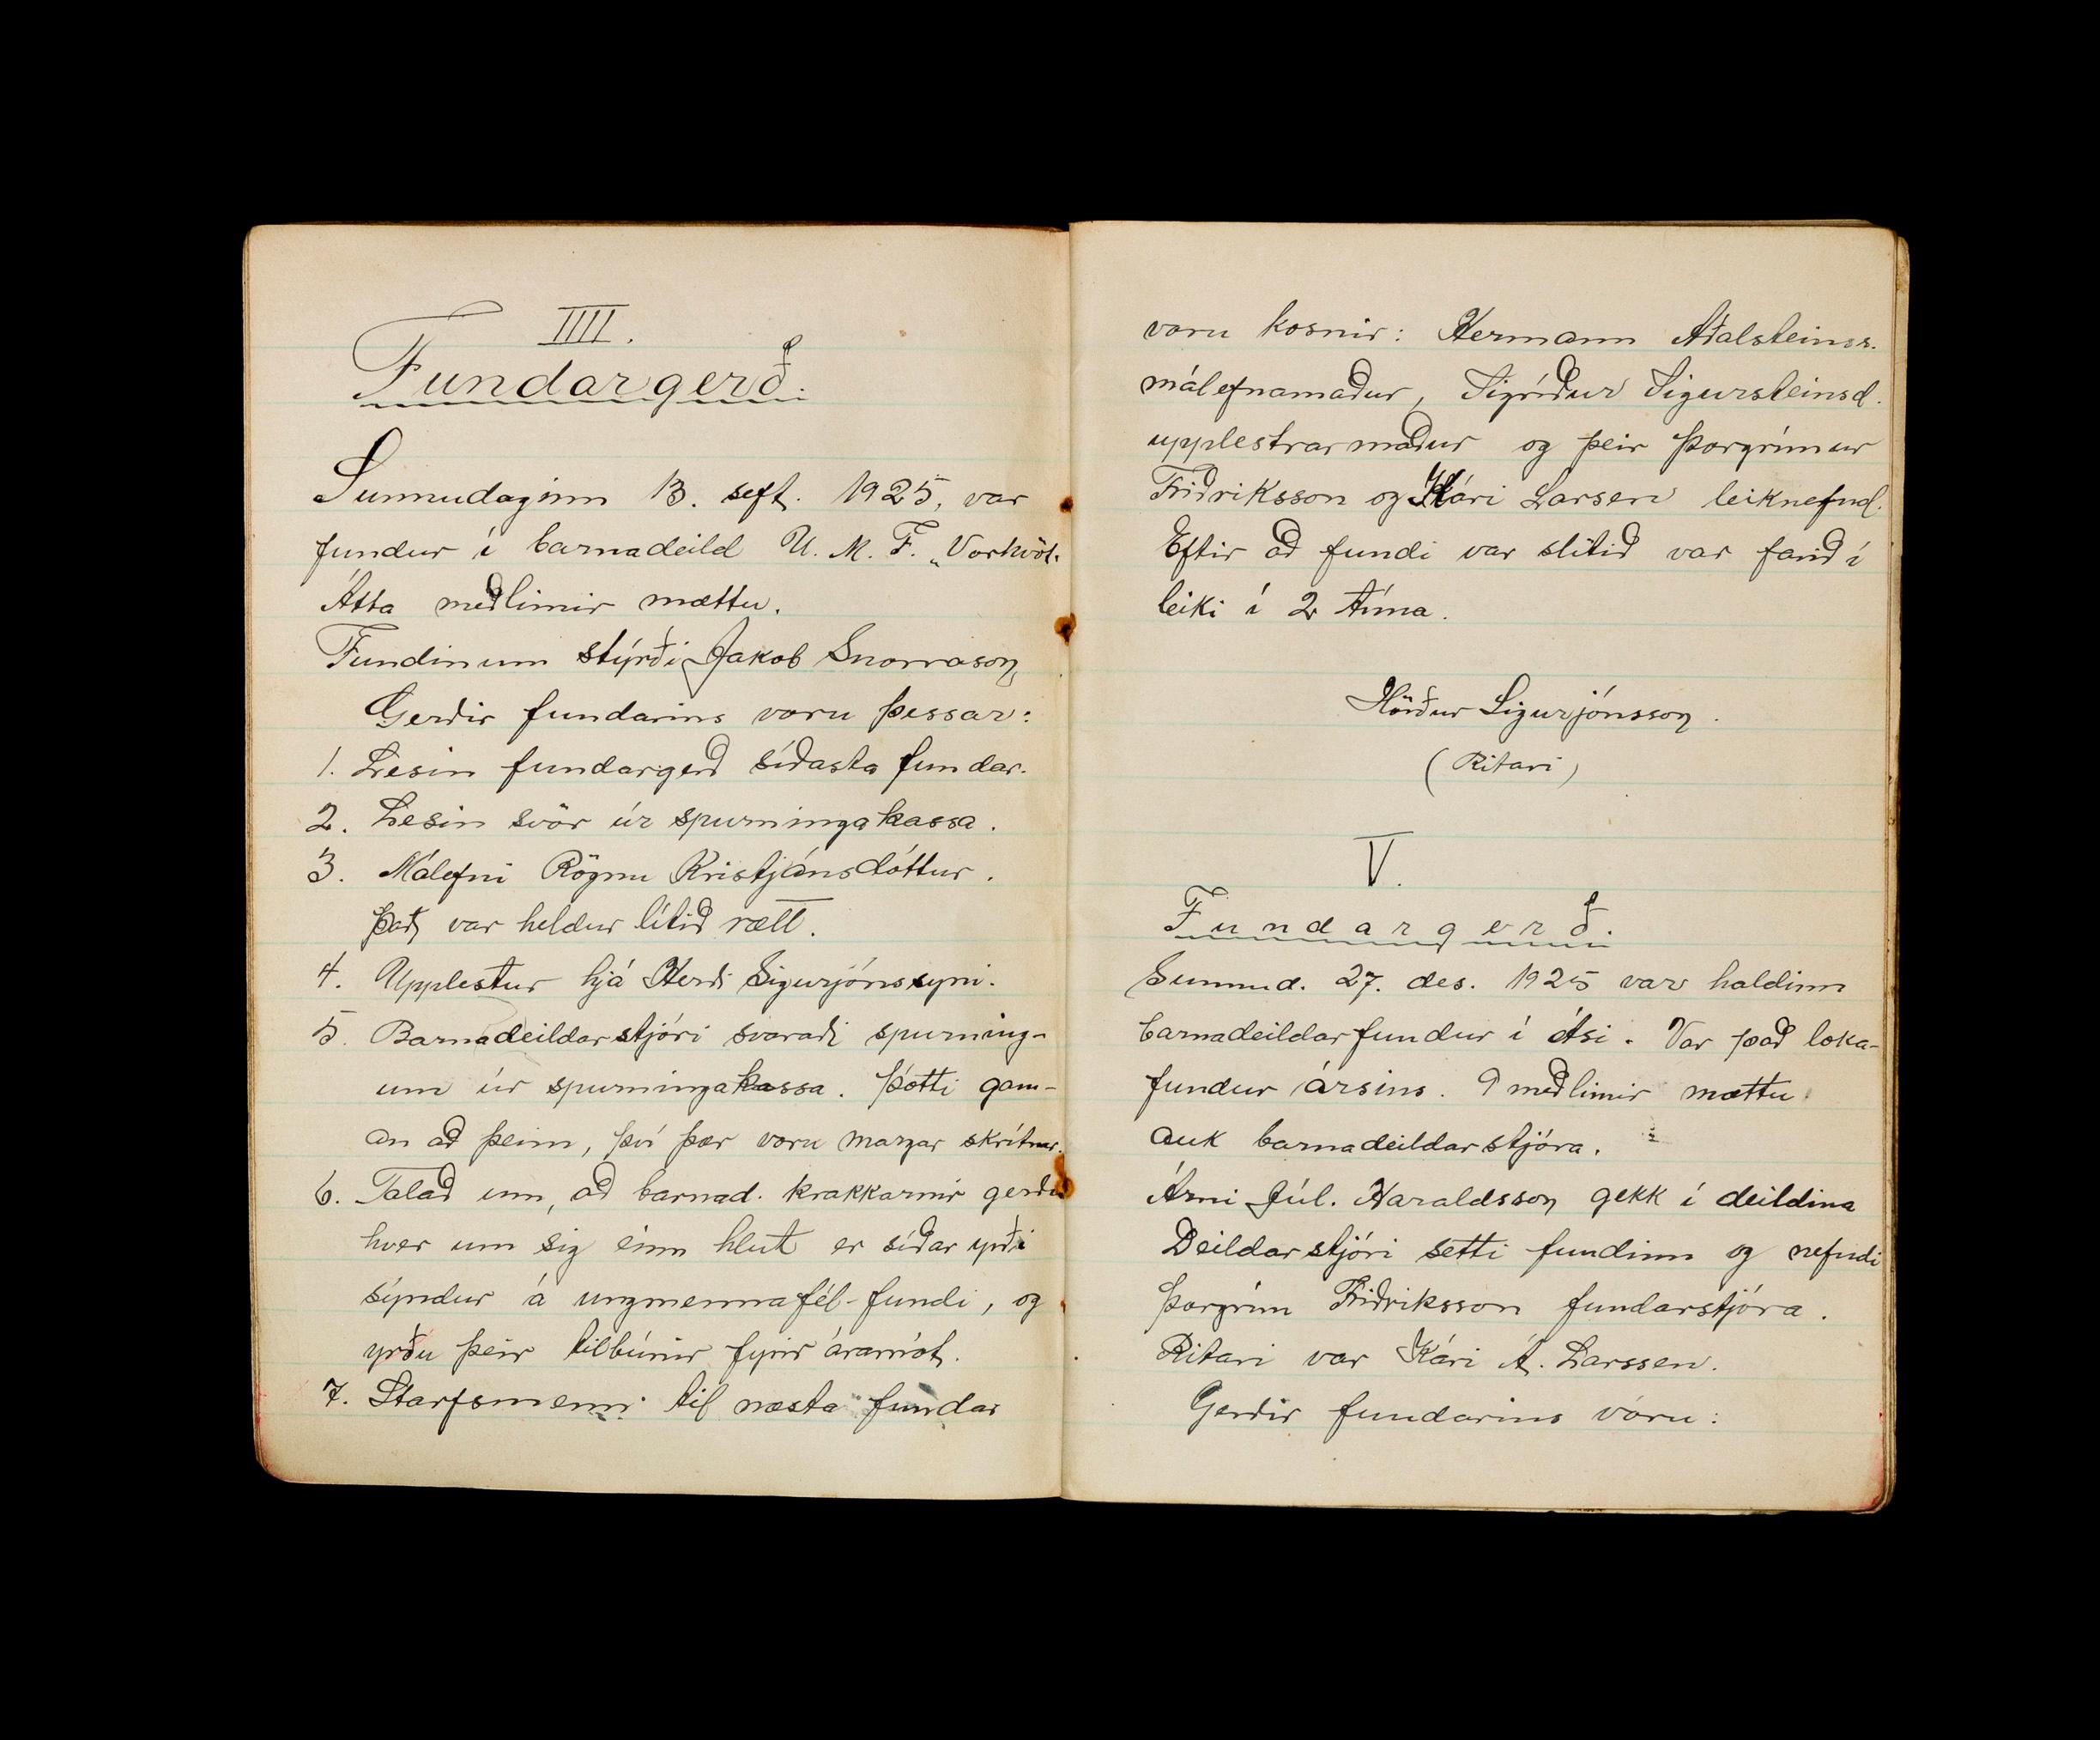 IIII.
Fundargerð.
Sunnudaginn 13. sept. 1925, var
fundur í barnadeild U. M. F. „Vorhvöt.
Átta meðlimir mættu.
Fundinum stýrði Jakob Snorrason,
Gerðir fundarins voru þessar:
1. Lesin fundargerð síðasta fundar.
2. Lesin svör úr spurningakassa.
3. Málefni Rögnu Kristjánsdóttur.
Það var heldur lítið rætt.
4. Upplestur hjá Herði Sigurjónssyni.
5. Barnadeildarstjóri svaraði spurning-
um úr spurningakassa. Þótti gam-
an að þeim, því þær voru margar skrítnar.
6. Talað um, að barnad. krakkarnir gerðu
hver um sig einn hlut er síðar yrði
sýndur á ungmennafél-fundi, og
yrðu þeir tilbúnir fyrir áramót.
7. Starfsmenn til næsta fundar
voru kosnir: Hermann Aðalsteinss.
málefnamaður, Sigríður Sigursteinsd.
upplestrarmaður og þeir Þorgrímur
Friðriksson og Kári Larsen leiknefnd.
Eftir að fundi var slitið var farið í
leiki í 2 tíma.
Hörður Sigurjónsson.
(Ritari)
V.
Fundargerð.
Sunnud. 27. des. 1925 var haldinn
barnadeildarfundur í Ási. Var það loka-
fundur ársins. 9 meðlimir mættu
auk barnadeildarstjóra.
Árni Júl. Haraldsson gekk í deildina
Deildarstjóri setti fundinn og nefndi
Þorgrím Friðriksson fundarstjóra.
Ritari var Kári Á. Larssen.
Gerðir fundarins voru: